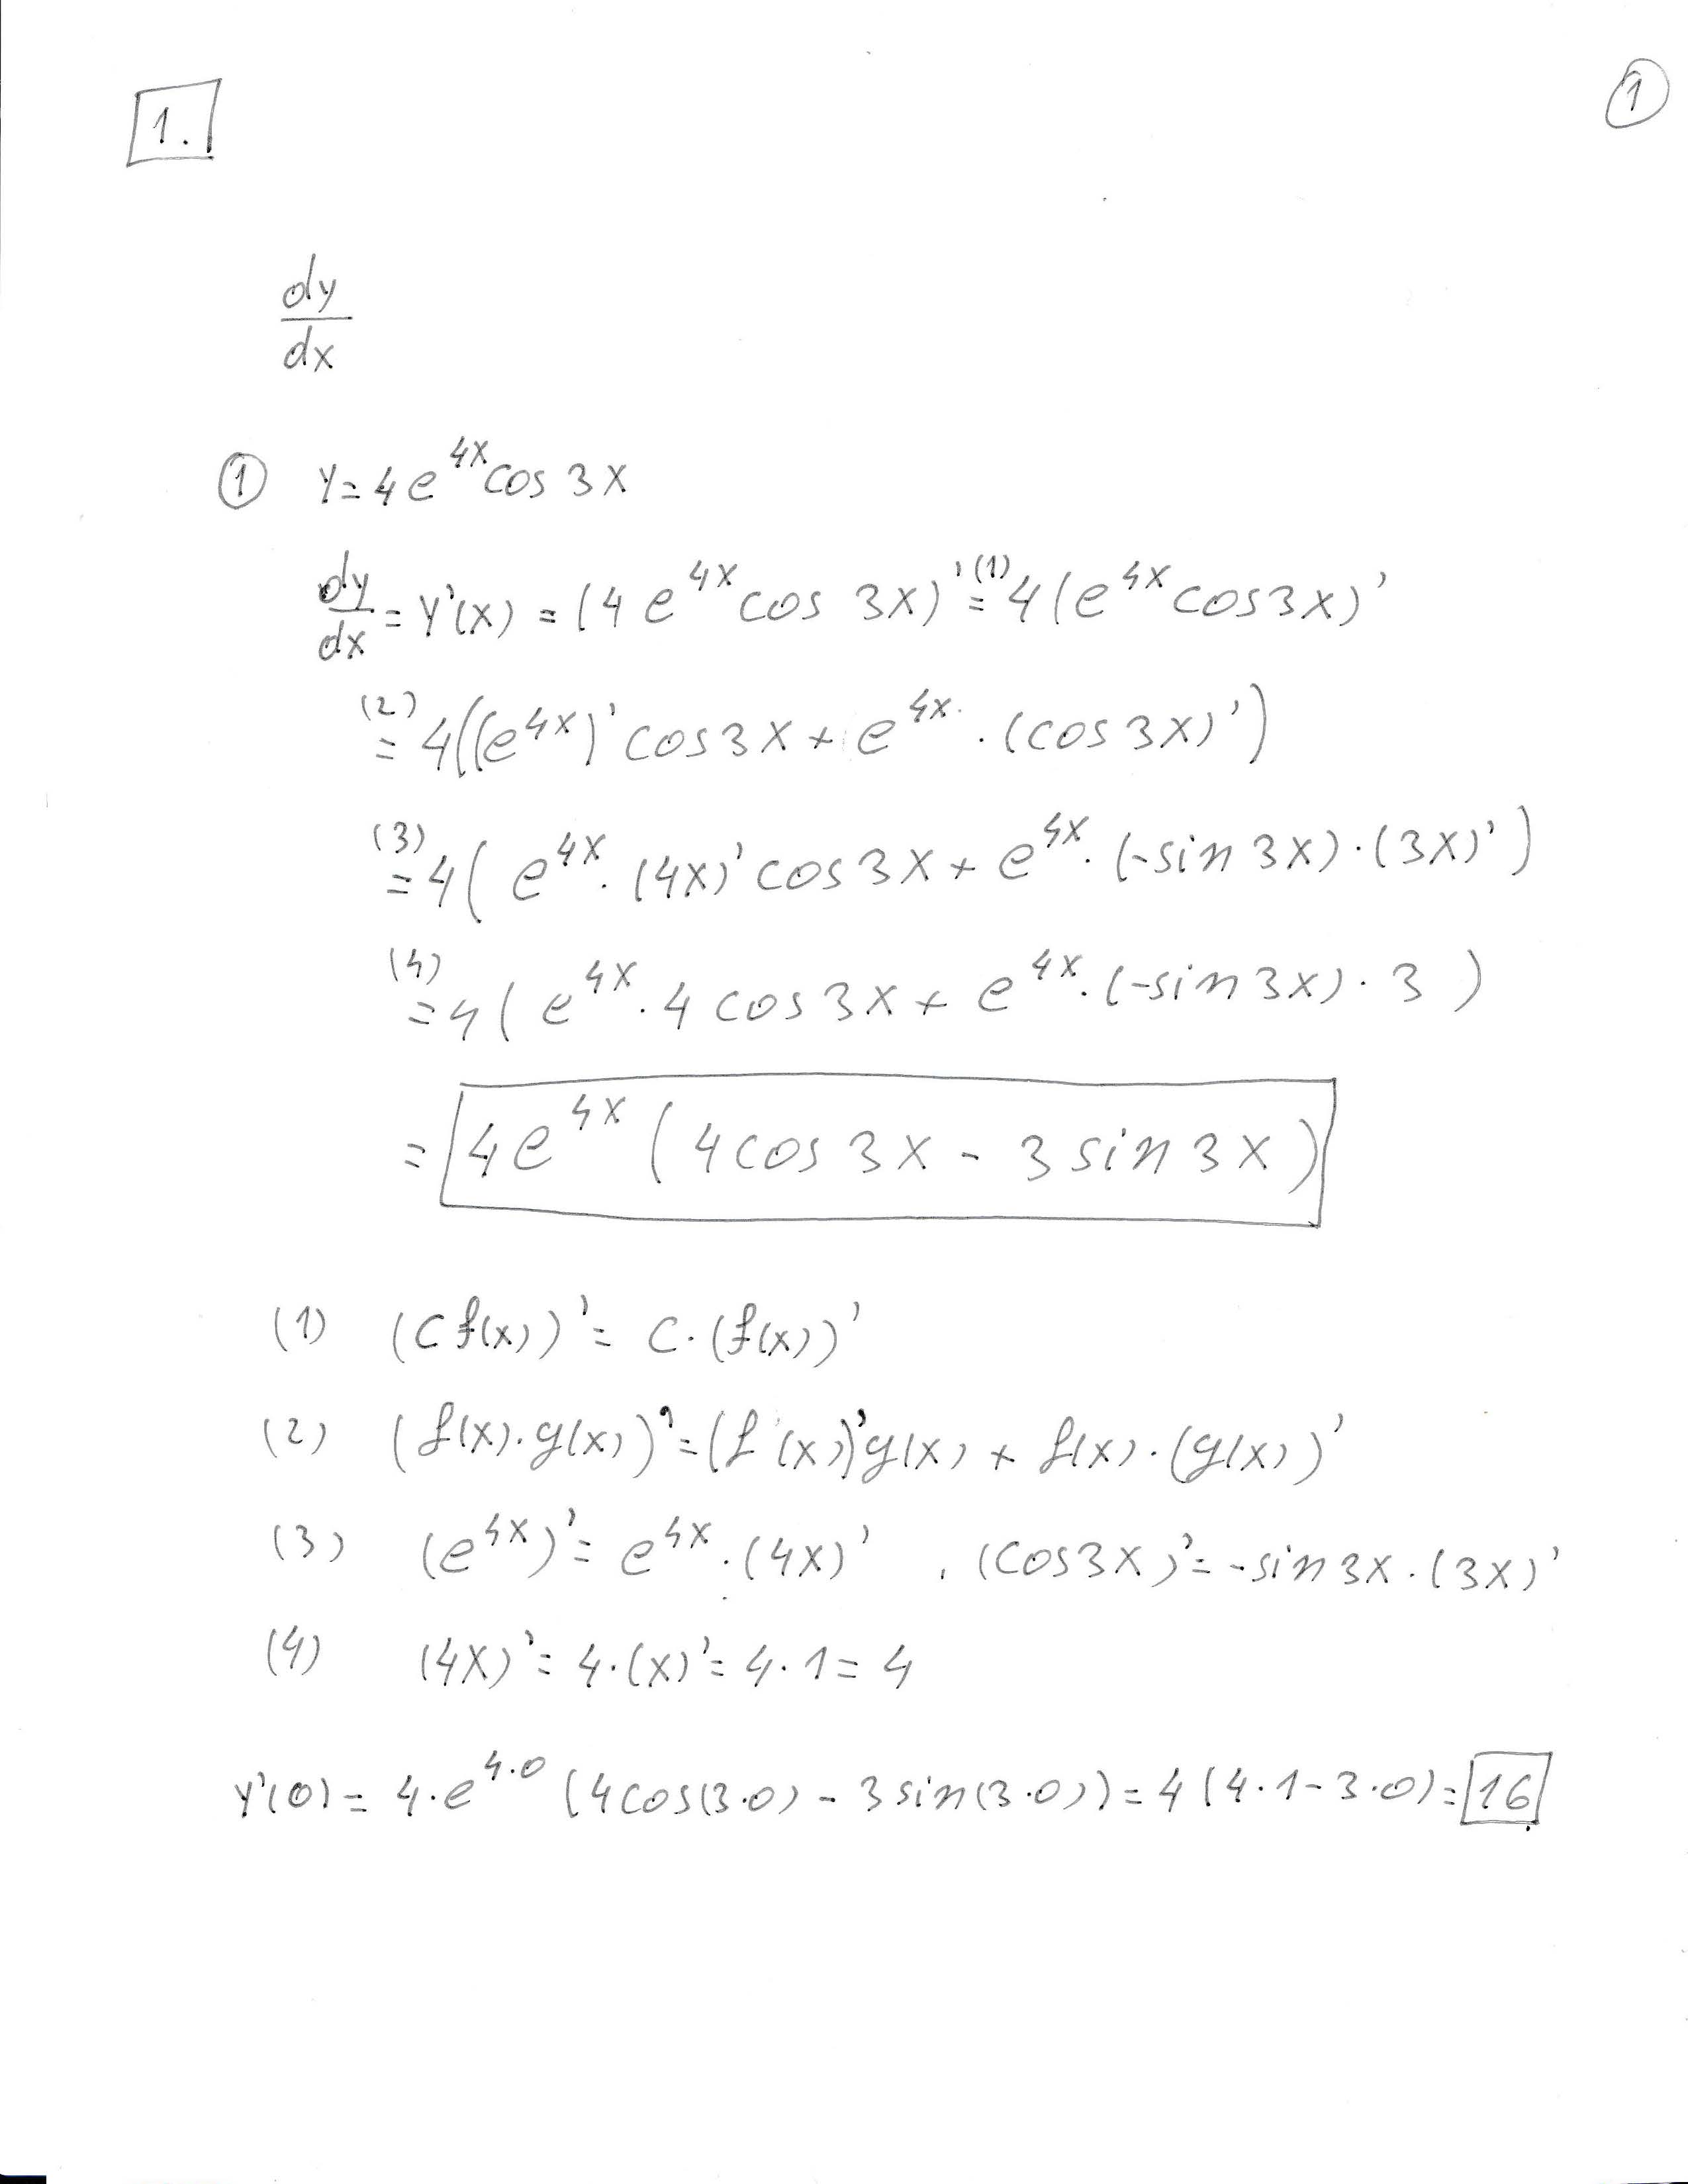 1.
①
dy
dx
① y=4e^4x cos 3x
dy/dx = y'(x) = (4e^4x cos 3x)' (1)= 4(e^4x cos3x)'
(2)= 4((e^4x)' cos3x + e^4x · (cos 3x)')
(3)= 4( e^4x · (4x)' cos 3x + e^4x · (-sin 3x) · (3x)')
(4)= 4( e^4x · 4 cos 3x + e^4x · (-sin 3x) · 3 )
= 4e^4x (4cos 3x - 3 sin 3x)
(1) (c f(x))' = c · (f(x))'
(2) (f(x) · g(x))' = (f(x))' g(x) + f(x) · (g(x))'
(3) (e^4x)' = e^4x · (4x)' , (cos3x)' = -sin 3x · (3x)'
(4) (4x)' = 4 · (x)' = 4 · 1 = 4
y'(0) = 4 · e^4·0 (4cos(3·0) - 3 sin(3·0)) = 4(4·1-3·0) = 16